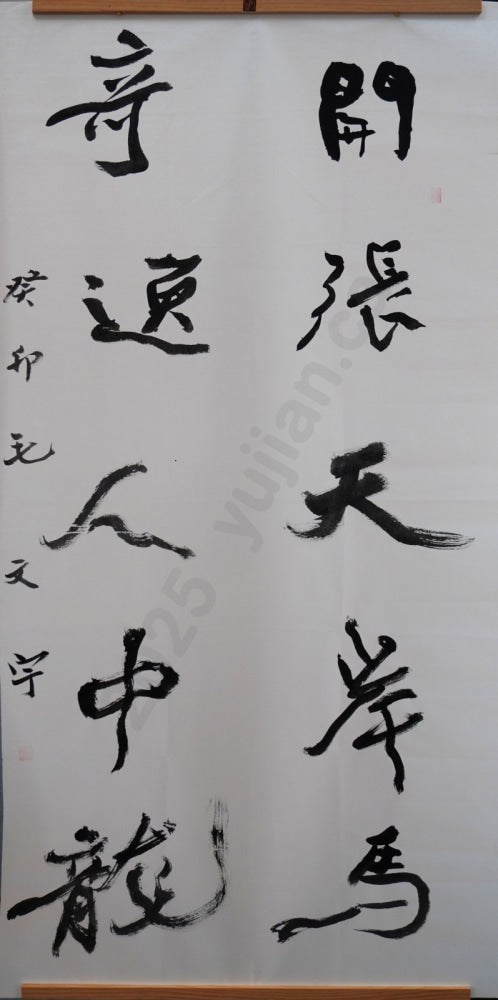 開張天岸馬
奇逸人中龍
癸卯毛文宇
2025 yujian.c